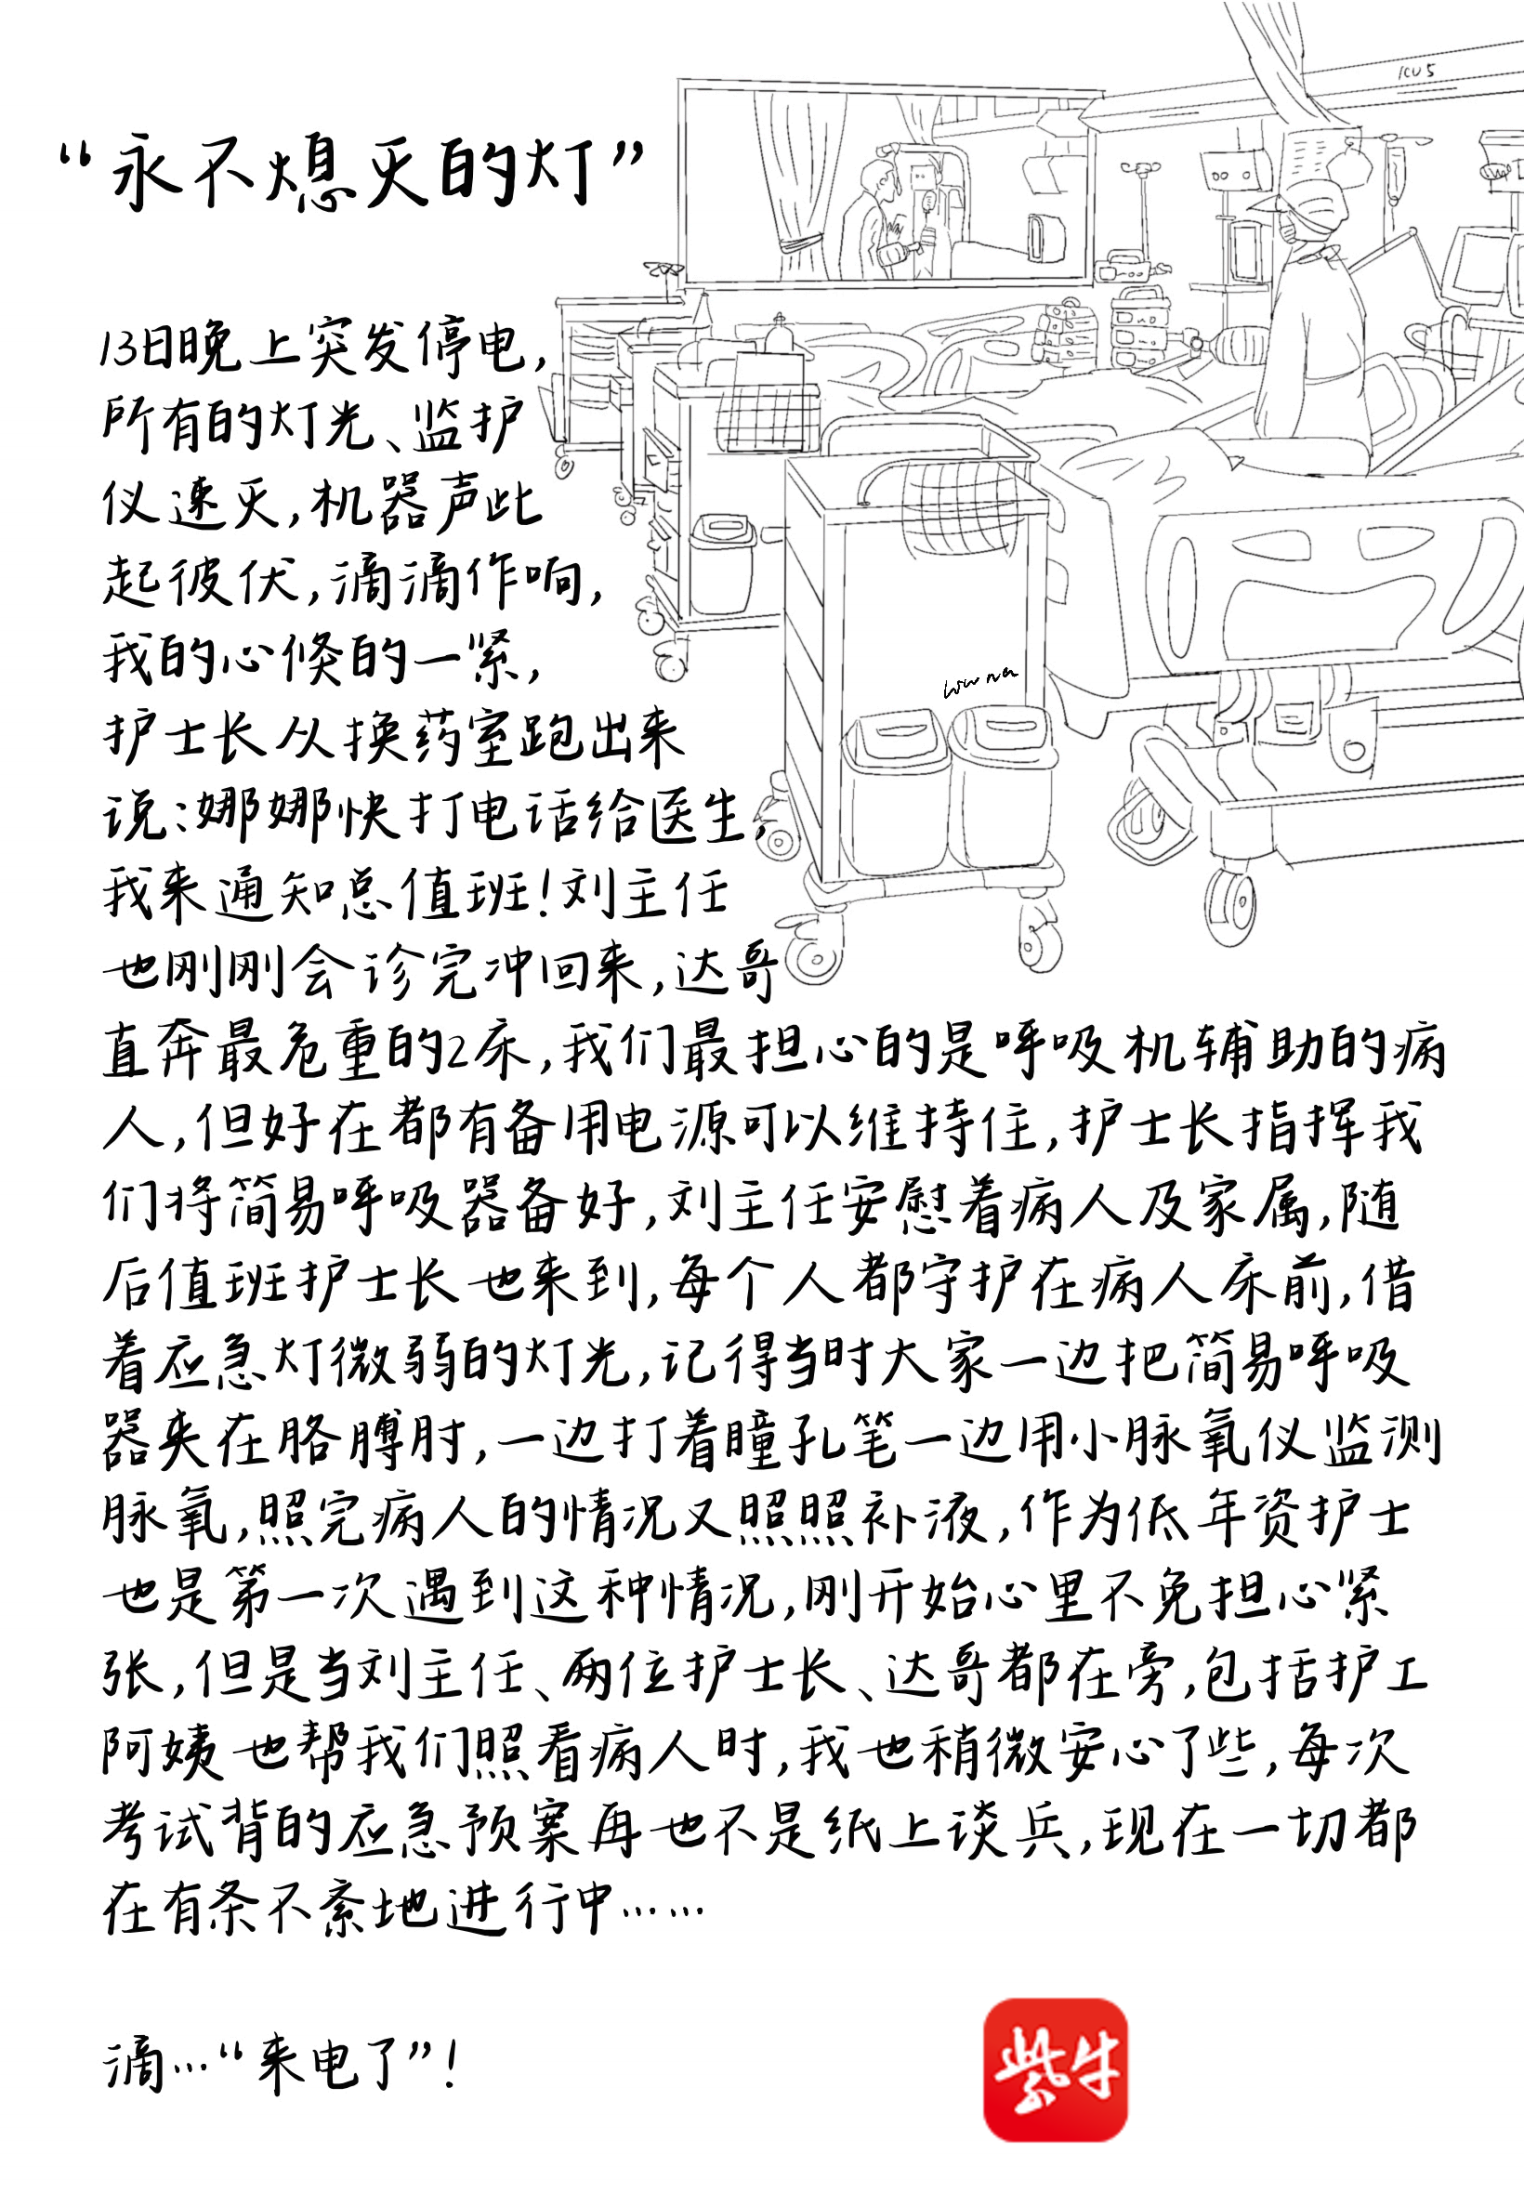 ICU 5
“永不熄灭的灯”
13日晚上突发停电,
所有的灯光、监护
仪速灭,机器声此
起彼伏,滴滴作响,
我的心倏的一紧,
护士长从换药室跑出来
说:娜娜快打电话给医生,
我来通知总值班!刘主任
也刚刚会诊完冲回来,达哥
直奔最危重的2床,我们最担心的是呼吸机辅助的病
人,但好在都有备用电源可以维持住,护士长指挥我
们将简易呼吸器备好,刘主任安慰着病人及家属,随
后值班护士长也来到,每个人都守护在病人床前,借
着应急灯微弱的灯光,记得当时大家一边把简易呼吸
器夹在胳膊肘,一边打着瞳孔笔一边用小脉氧仪监测
脉氧,照完病人的情况又照照补液,作为低年资护士
也是第一次遇到这种情况,刚开始心里不免担心紧
张,但是当刘主任、两位护士长、达哥都在旁,包括护工
阿姨也帮我们照看病人时,我也稍微安心了些,每次
考试背的应急预案再也不是纸上谈兵,现在一切都
在有条不紊地进行中……
滴…“来电了”!
紫牛